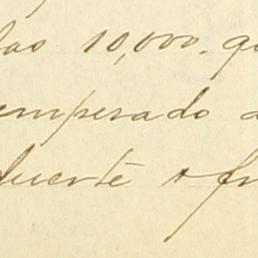 las 10,000. qu
emperado a
fuerte y fr